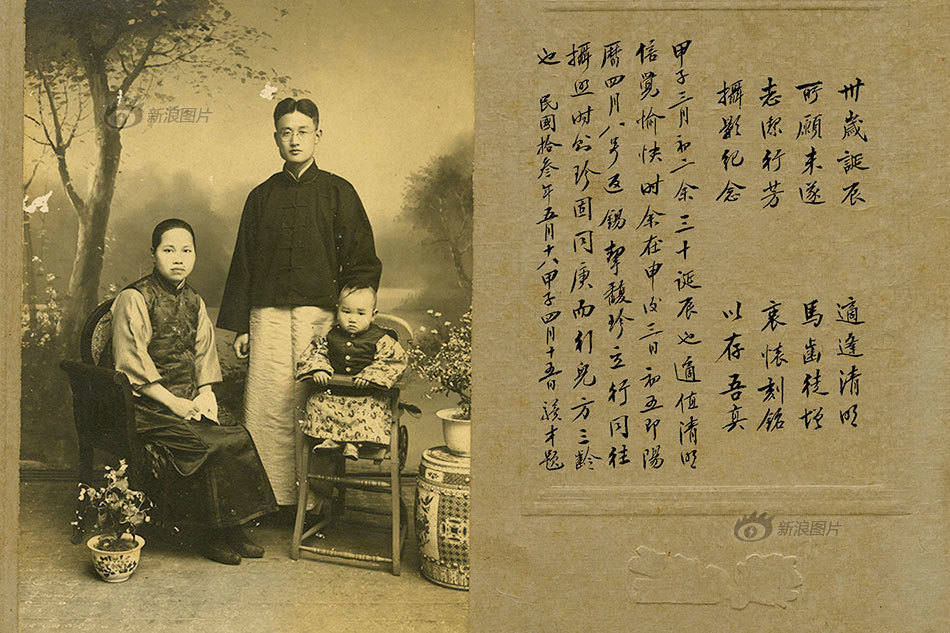 卅歲誕辰 適逢清明
所願未遂 馬齒徒增
志潔行芳 衷懷刻銘
攝影紀念 以存吾真
甲子三月初二余三十誕辰也適值清明
信覺愉快时余在申後三日初五即陽
曆四月八号返錫挈馥珍立行同往
攝照时珍固同庚而行兒方三齡
也 民國拾叁年五月十八甲子四月十五日才題
新浪图片
新浪图片